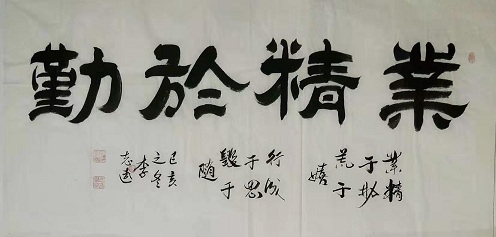 業精於勤
業精
于勤
荒于
嬉
行成
于思
毀于
随
己亥
之冬
李
志遠